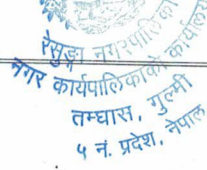 रेसुङ्गा नगरपालिका
नगर कार्यपालिकाको कार्यालय
तम्घास, गुल्मी
५ नं. प्रदेश, नेपाल